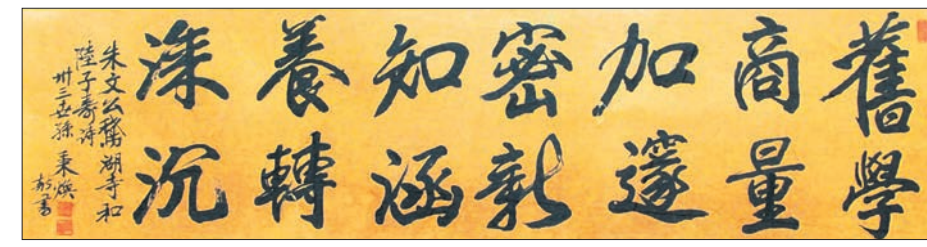 舊學
商量
加邃
密新
知涵
養轉
深沉
朱文公鵝湖寺和
陸子壽詩
卅三世孫 秉煥
敬書